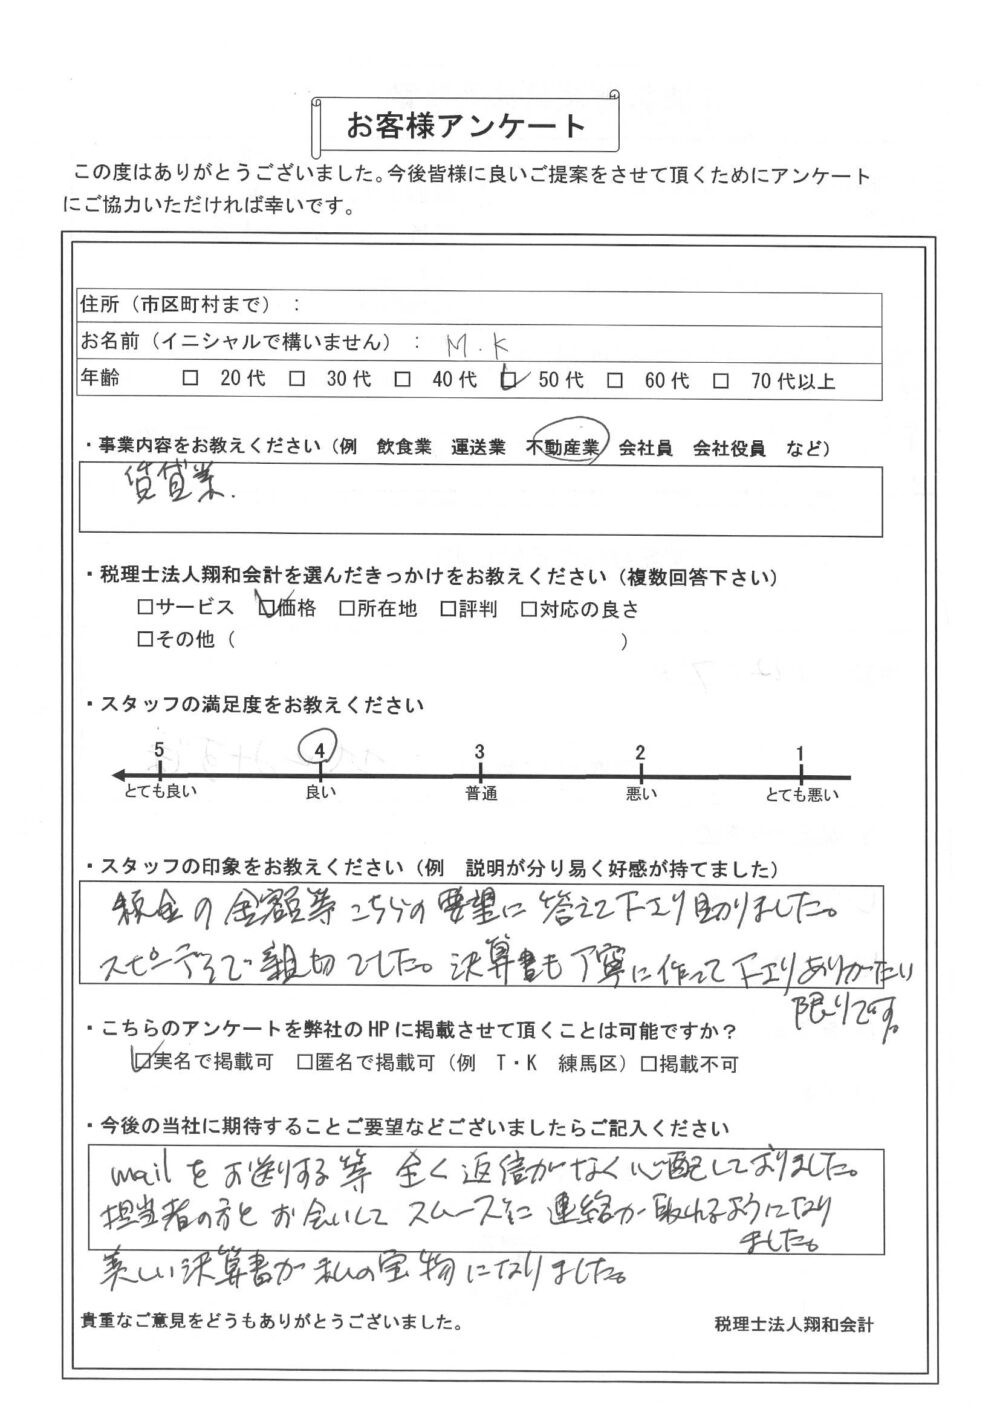 お客様アンケート
この度はありがとうございました。今後皆様に良いご提案をさせて頂くためにアンケート
にご協力いただければ幸いです。
住所（市区町村まで）：
お名前（イニシャルで構いません）： M.K
年齢 □ 20代 □ 30代 □ 40代 ☑ 50代 □ 60代 □ 70代以上
・事業内容をお教えください（例 飲食業 運送業 不動産業 会社員 会社役員 など）
賃貸業.
・税理士法人翔和会計を選んだきっかけをお教えください（複数回答下さい）
□サービス ☑価格 □所在地 □評判 □対応の良さ
□その他（ ）
・スタッフの満足度をお教えください
5 4 3 2 1
とても良い 良い 普通 悪い とても悪い
・スタッフの印象をお教えください（例 説明が分り易く好感が持てました）
税金の金額等こちらの要望に答えて下さり助りました。
スピーディで親切でした。決算書も丁寧に作って下さりありがたい
限りです。
・こちらのアンケートを弊社のHPに掲載させて頂くことは可能ですか？
☑実名で掲載可 □匿名で掲載可（例 T・K 練馬区）□掲載不可
・今後の当社に期待することご要望などございましたらご記入ください
mailをお送りする等 全く返信がなく心配しておりました。
担当者の方とお会いしてスムーズに連絡が取れるようになり
ました。
美しい決算書が私の宝物になりました。
貴重なご意見をどうもありがとうございました。
税理士法人翔和会計